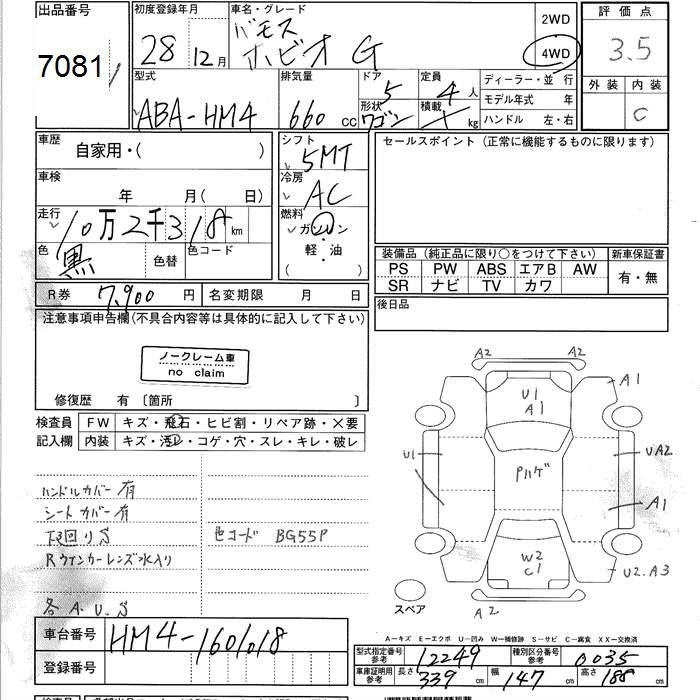 出品番号 初度登録年月 車名・グレード 2WD 評価点
7081 28年12月 バモス ホビオ G 4WD 3.5
型式 排気量 ドア 定員 ディーラー・並行 外装 内装
ABA-HM4 660cc 5 4人 モデル年式 年 C
形状 ワゴン 積載 kg ハンドル 左・右
車歴 自家用・( )
シフト 5MT
セールスポイント (正常に機能するものに限ります)
車検 年 月( 日)
冷房 AC
走行 10万2千318km
燃料 ガソリン・軽・油 ( )
色 黒 色替 色コード
装備品(純正品に限り○をつけて下さい) 新車保証書
PS PW ABS エアB AW 有・無
SR ナビ TV カワ
R券 7,900円 名変期限 月 日
後日品
注意事項申告欄(不具合内容等は具体的に記入して下さい)
ノークレーム車
no claim
修復歴 有〔箇所 〕
検査員 FW キズ・飛石・ヒビ割・リペア跡・×要
記入欄 内装 キズ・汚レ・コゲ・穴・スレ・キレ・破レ
A2 A2
U1 A1 A1
U1 Pハゲ UA2
A1
W2 C1 U2.A3
スペア A2
ハンドルカバー有
シートカバー有
下回りS 色コード BG55P
Rウインカーレンズ水入り
各A.U.S
A—キズ E—エクボ U—凹み W—補修跡 S—サビ C—腐食 XX—交換済
車台番号 HM4-1601018
型式指定番号 参考 12249 種別区分番号 参考 0035
登録番号
車庫証明用 参考 長さ 339cm 幅 147cm 高さ 188cm